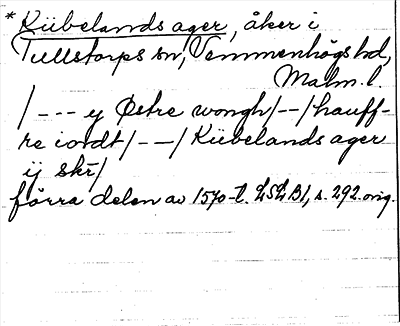 *Kübelands ager, åker i
Tullstorps sn, Vemmenhögs hd,
Malm. l.
/--- y Østre wongh/--/hauff-
re iordt/--/Kübelands ager
ij skr̄/
förra delen av 1570-t. LSLB1, s. 292. orig.